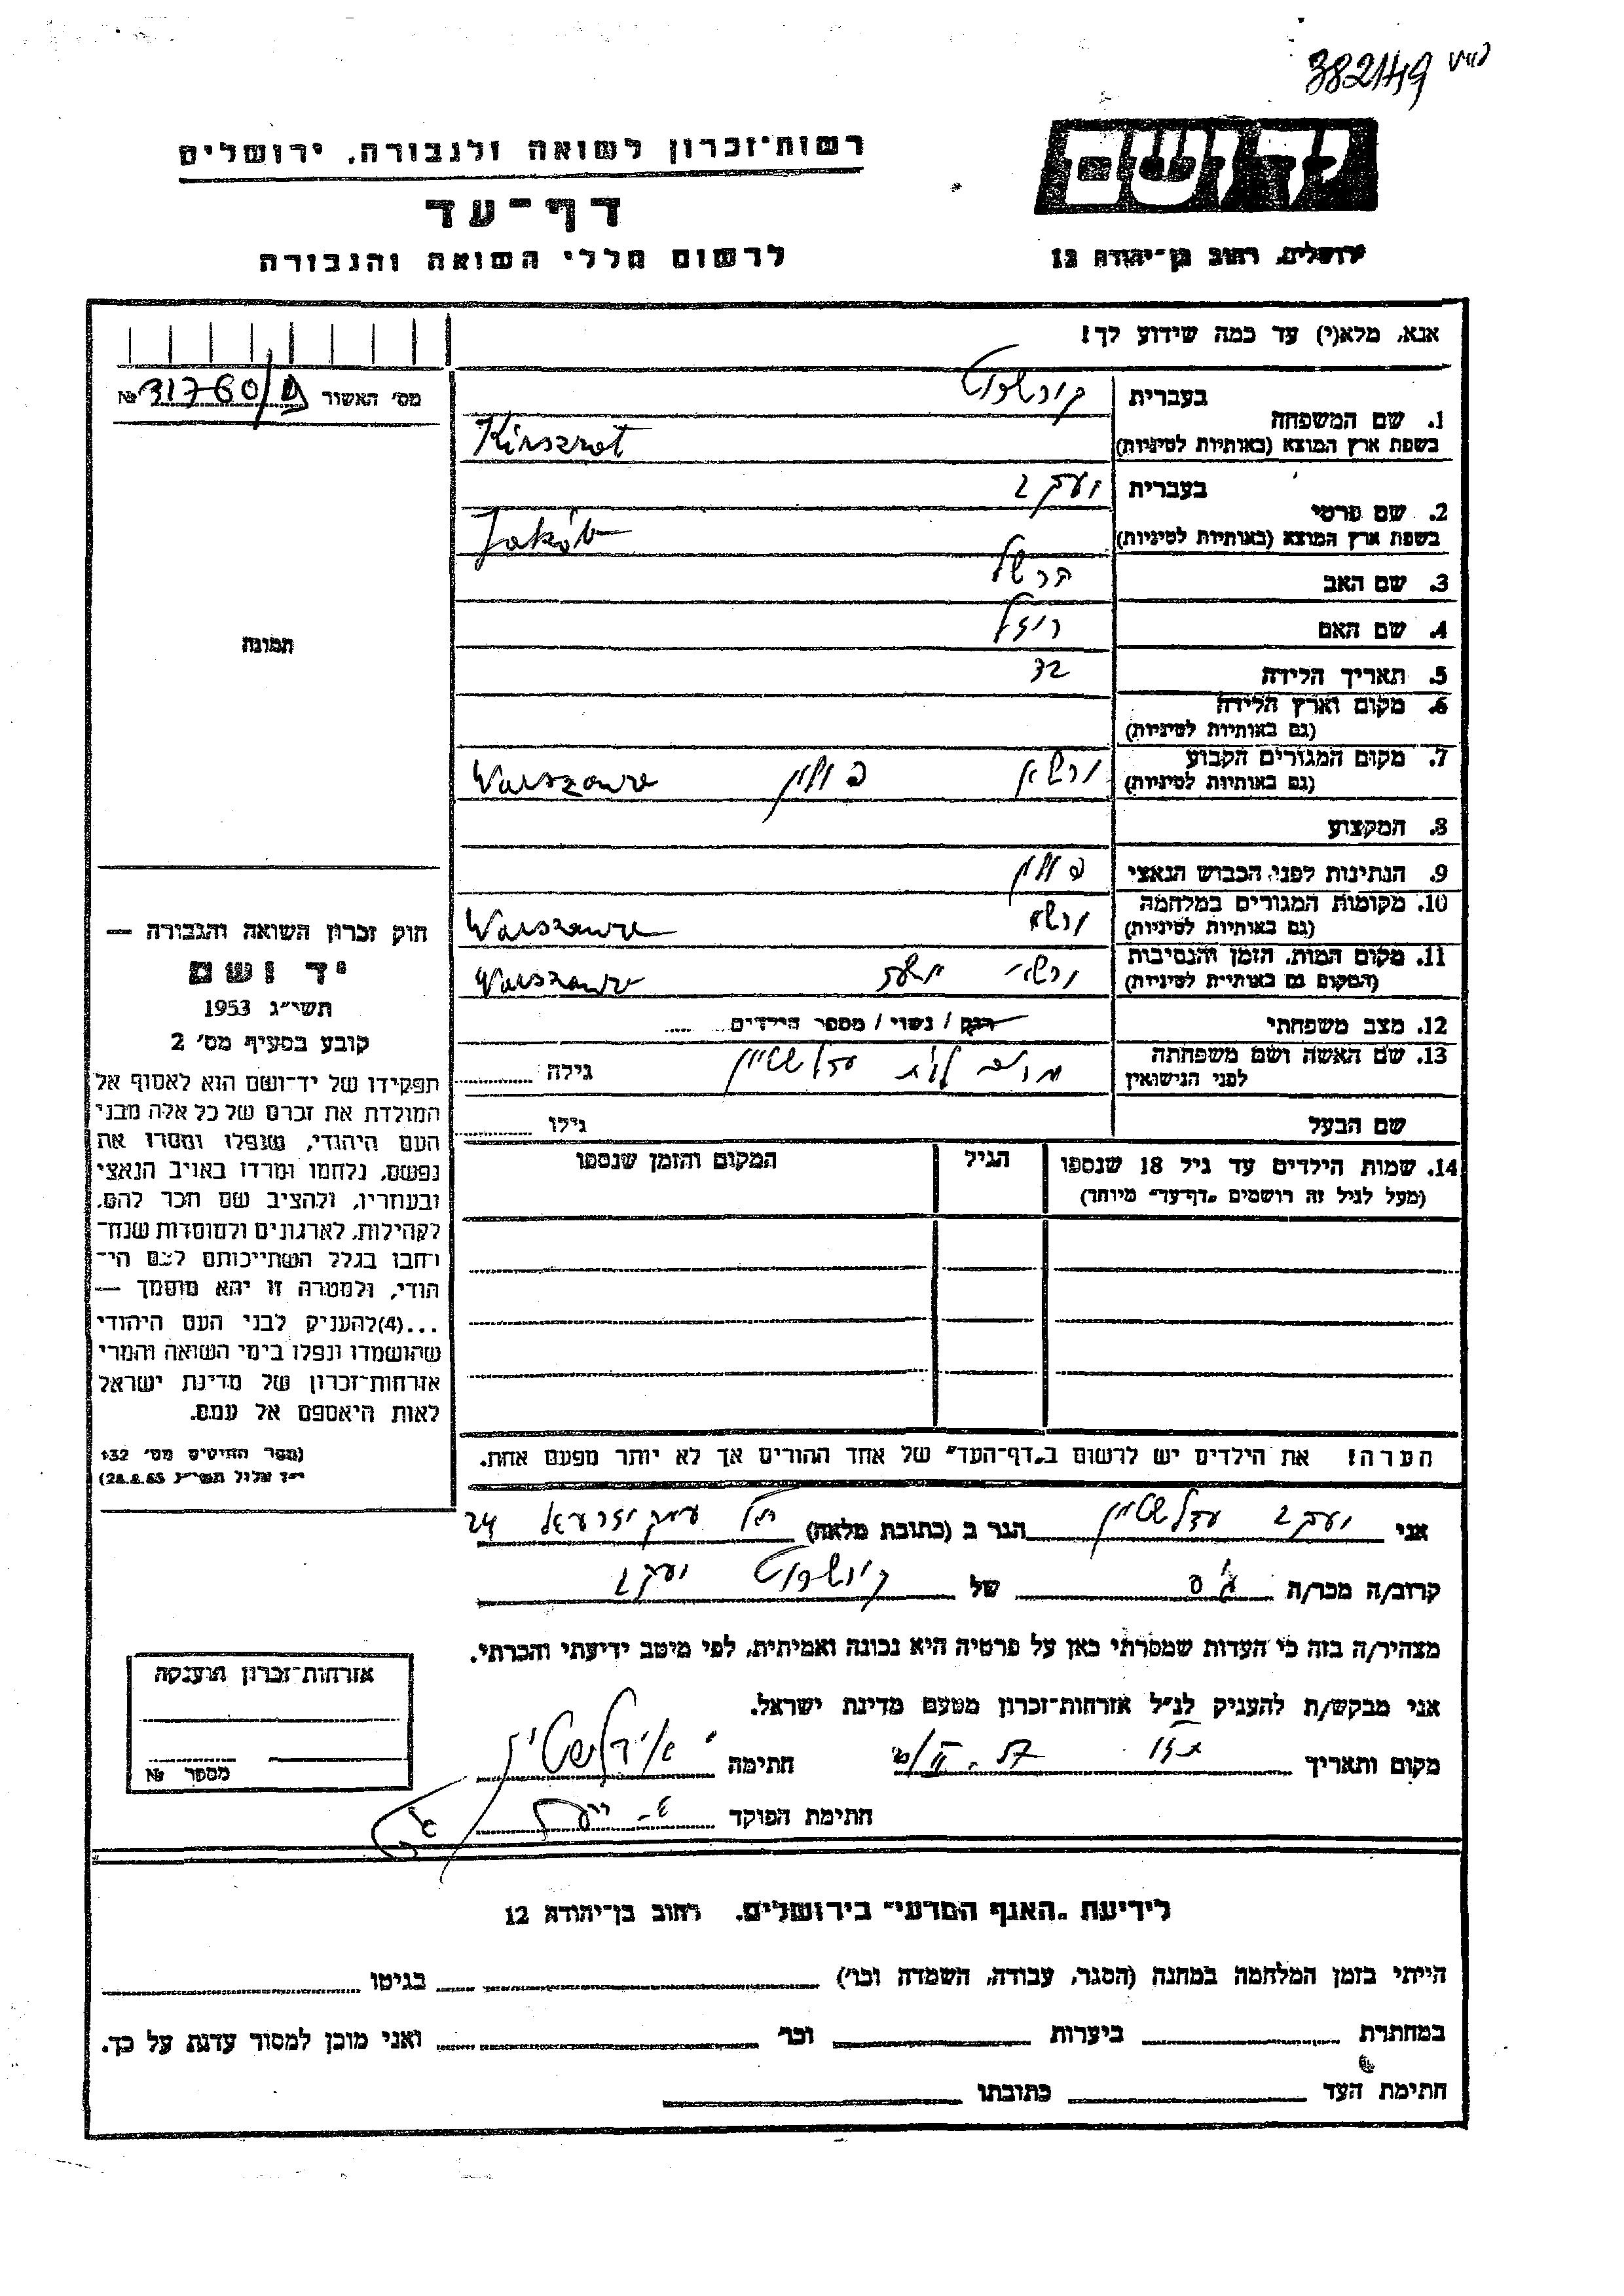 382149
רשות־זכרון לשואה ולגבורה, ירושלים
דף־עד
לרשום חללי השואה והגבורה
יד ושם
ירושלים, רחוב בן־יהודה 12
אנא, מלא(י) עד כמה שידוע לך!
מס' האשור № 31760/
1. שם המשפחה
בעברית קירשרוט
בשפת ארץ המוצא (באותיות לטיניות) Kirszrot
2. שם פרטי
בעברית יעקב
בשפת ארץ המוצא (באותיות לטיניות) Jakób
3. שם האב הרשל
4. שם האם רויזל
5. תאריך הלידה 32
6. מקום וארץ הלידה
(גם באותיות לטיניות)
7. מקום המגורים הקבוע ורשא פולין Warszawa
(גם באותיות לטיניות)
8. המקצוע
9. הנתינות לפני הכבוש הנאצי פולין
10. מקומות המגורים במלחמה ורשא Warszawa
(גם באותיות לטיניות)
11. מקום המות, הזמן והנסיבות ורשא Warszawa
(המקום גם באותיות לטיניות)
12. מצב משפחתי רווק / נשוי / מספר הילדים
13. שם האשה ושם משפחתה
לפני הנישואין מרים לבית אדלשטיין גילה
שם הבעל גילו
14. שמות הילדים עד גיל 18 שנספו הגיל המקום והזמן שנספו
(מעל לגיל זה רושמים "דף־עד" מיוחד)
הערה! את הילדים יש לרשום ב"דף־העד" של אחד ההורים אך לא יותר מפעם אחת.
תמונה
חוק זכרון השואה והגבורה —
יד ושם
תשי"ג 1953
קובע בסעיף מס' 2
תפקידו של יד־ושם הוא לאסוף אל
המולדת את זכרם של כל אלה מבני
העם היהודי, שנפלו ומסרו את
נפשם, נלחמו ומרדו באויב הנאצי
ובעוזריו, ולהציב שם וזכר להם,
לקהילות, לארגונים ולמוסדות שנח־
רבו בגלל השתייכותם לעם הי־
הודי, ולמטרה זו יהא מוסמך —
...(4)להעניק לבני העם היהודי
שהושמדו ונפלו בימי השואה והמרי
אזרחות־זכרון של מדינת ישראל
לאות היאספם אל עמם.
(ספר החוקים מס' 132
י"ז אלול תשי"ג 28.8.53)
אני יעקב אדלשטיין הגר ב (כתובת מלאה) עמק יזרעאל 24
קרוב/ה מכר/ה גיס של קירשרוט יעקב
מצהיר/ה בזה כי העדות שמסרתי כאן על פרטיה היא נכונה ואמיתית, לפי מיטב ידיעתי והכרתי.
אני מבקש/ת להעניק לנ"ל אזרחות־זכרון מטעם מדינת ישראל.
מקום ותאריך 57 חתימה י אידלשטיין
חתימת הפוקד
אזרחות־זכרון הוענקה
מספר №
לידיעת "האגף המדעי" בירושלים, רחוב בן־יהודה 12
הייתי בזמן המלחמה במחנה (הסגר, עבודה, השמדה וכו') בגיטו
במחתרת ביערות וכו' ואני מוכן למסור עדות על כך.
חתימת העד כתובתו